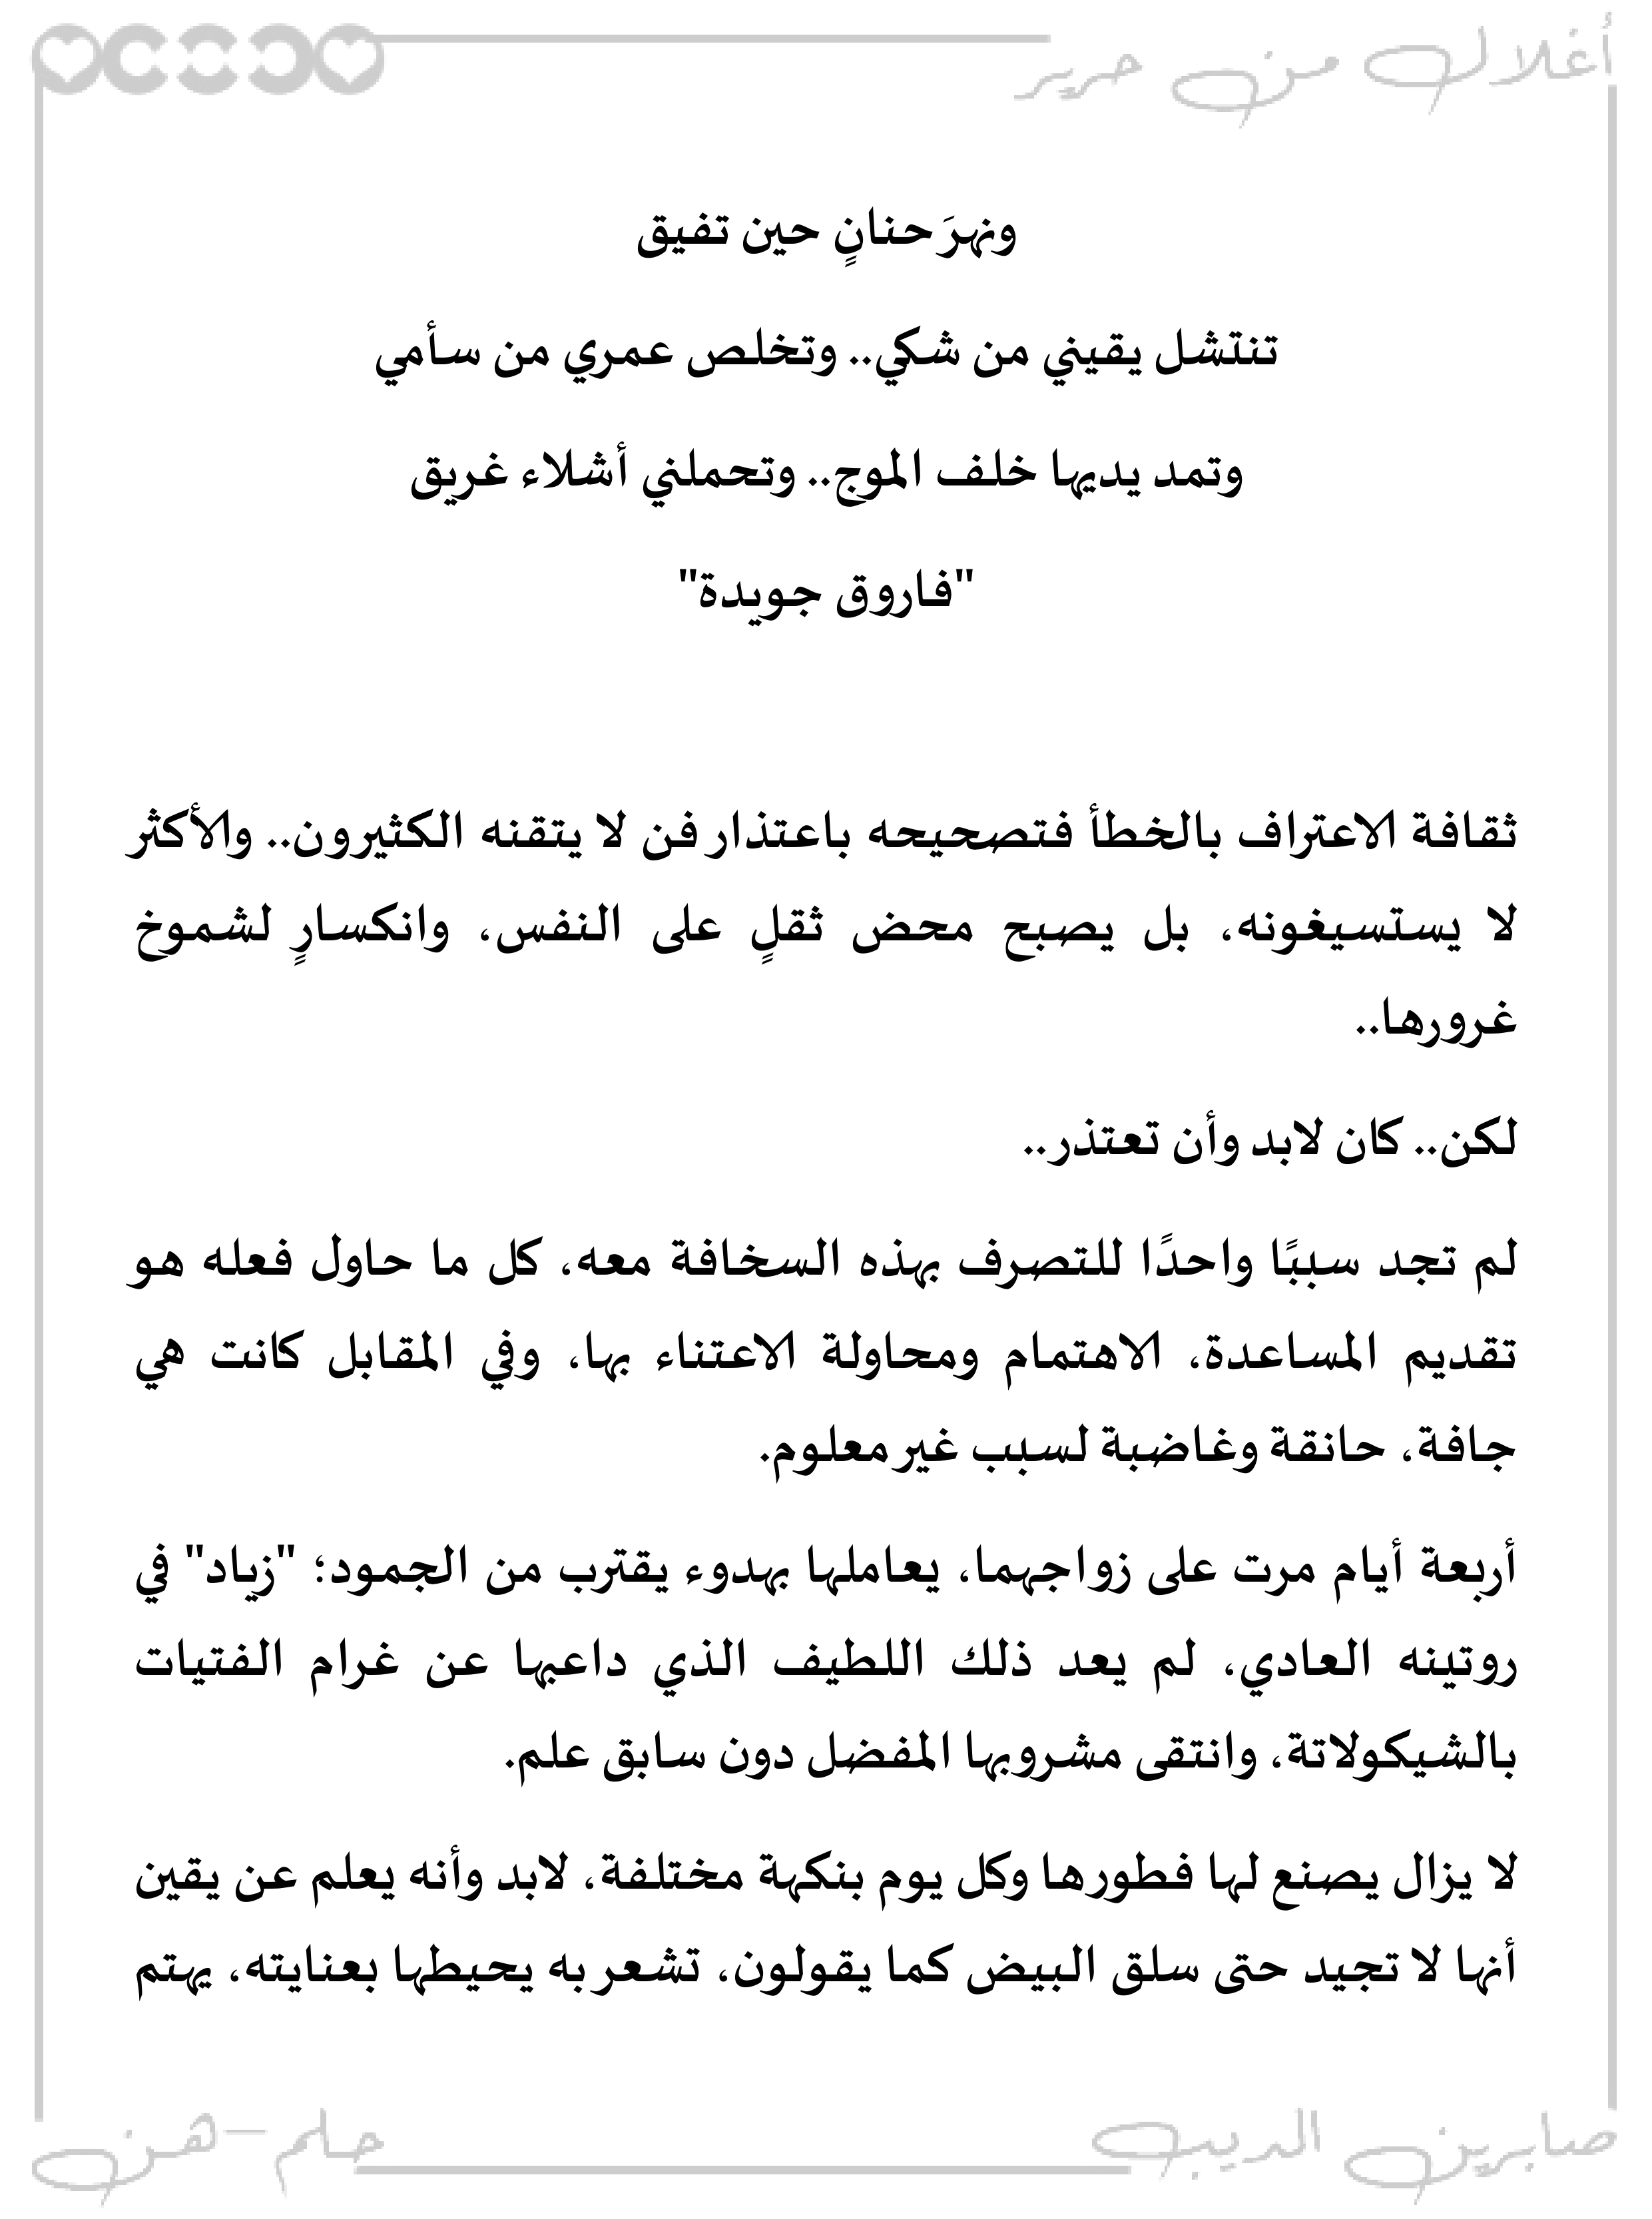 أغلال من حرير
ونهرَ حنانٍ حين تفيق
تنتشل يقيني من شكي.. وتخلص عمري من سأمي
وتمد يديها خلف الموج.. وتحملني أشلاء غريق
"فاروق جويدة"
ثقافة الاعتراف بالخطأ فتصحيحه باعتذار فن لا يتقنه الكثيرون.. والأكثر
لا يستسيغونه، بل يصبح محض ثقلٍ على النفس، وانكسارٍ لشموخ
غرورها..
لكن.. كان لابد وأن تعتذر..
لم تجد سببًا واحدًا للتصرف بهذه السخافة معه، كل ما حاول فعله هو
تقديم المساعدة، الاهتمام ومحاولة الاعتناء بها، وفي المقابل كانت هي
جافة، حانقة وغاضبة لسبب غير معلوم.
أربعة أيام مرت على زواجهما، يعاملها بهدوء يقترب من الجمود؛ "زياد" في
روتينه العادي، لم يعد ذلك اللطيف الذي داعبها عن غرام الفتيات
بالشيكولاتة، وانتقى مشروبها المفضل دون سابق علم.
لا يزال يصنع لها فطورها وكل يوم بنكهة مختلفة، لابد وأنه يعلم عن يقين
أنها لا تجيد حتى سلق البيض كما يقولون، تشعر به يحيطها بعنايته، يهتم
صابرين الديب
حلم-هن